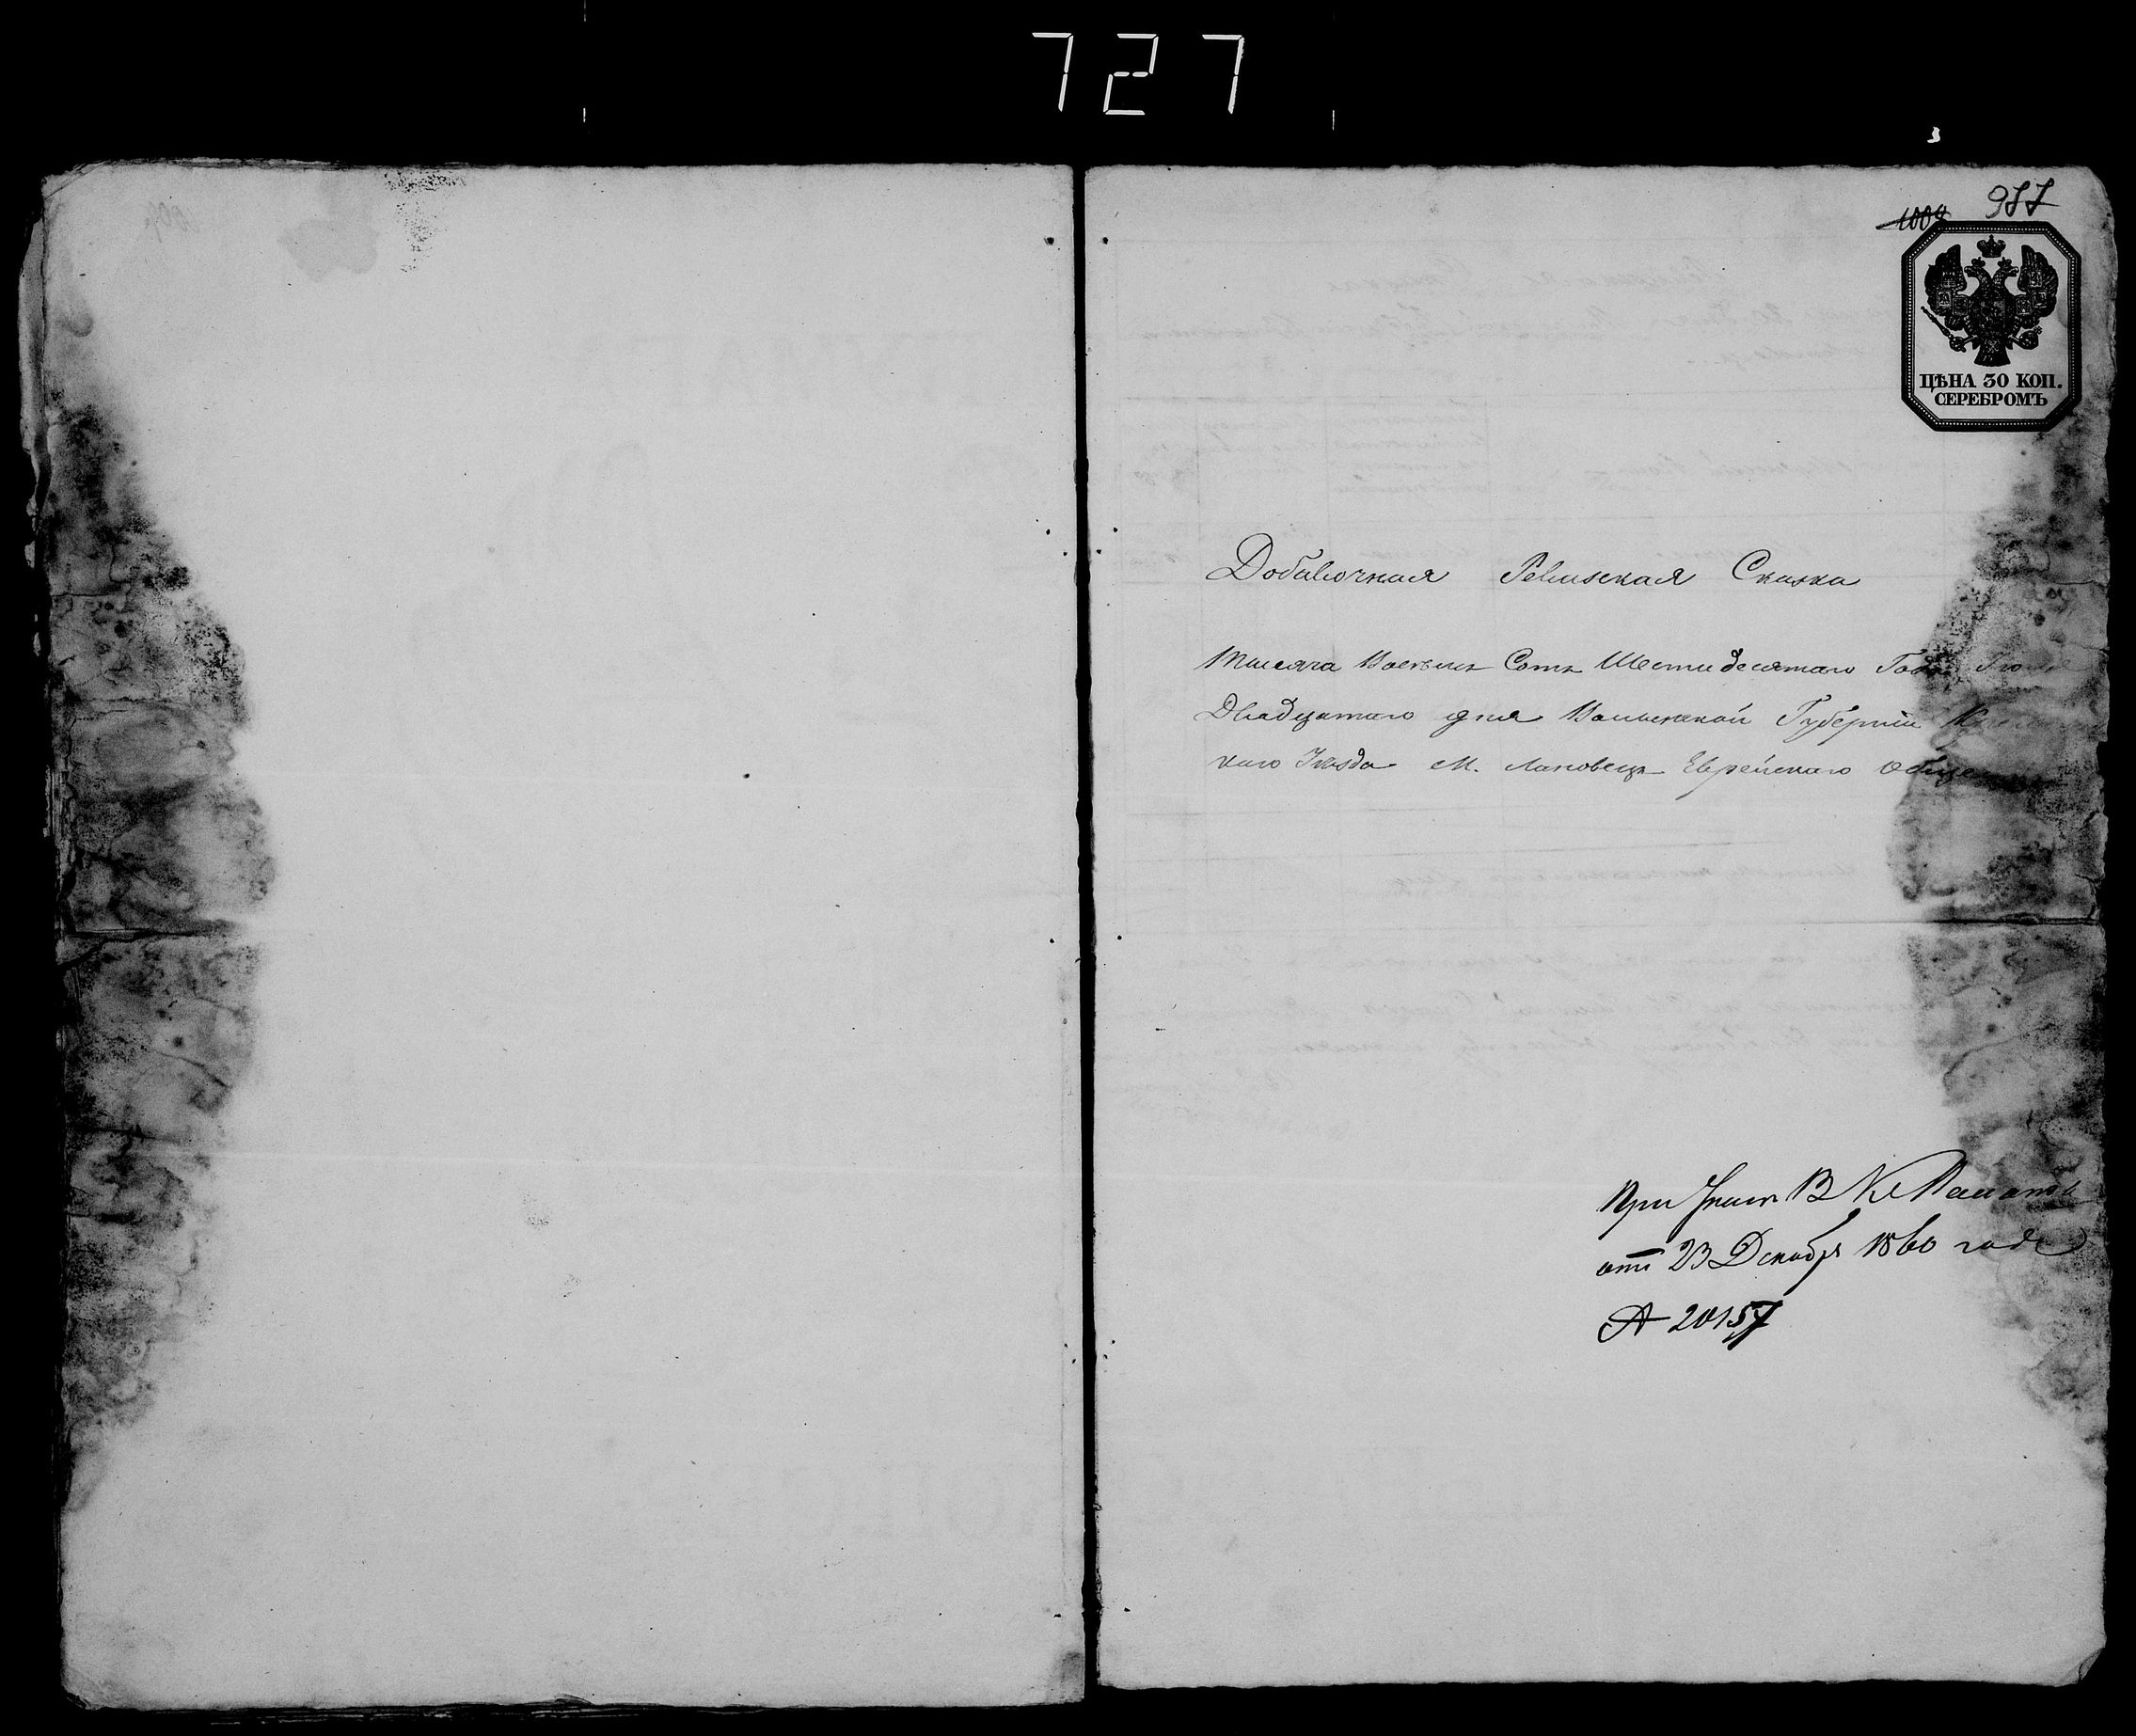 727
977
1004
ЦѢНА 30 КОП.
СЕРЕБРОМЪ
Добавочная Ревизская Сказка
Тысяча Восемь Сотъ Шестидесятаго Года
Двадцатаго дня Волынской Губерніи
каго Уѣзда М. Лановецъ Еврейскаго
При Указѣ В К Палаты
отъ 23 Декабря 1860 года
№ 20157